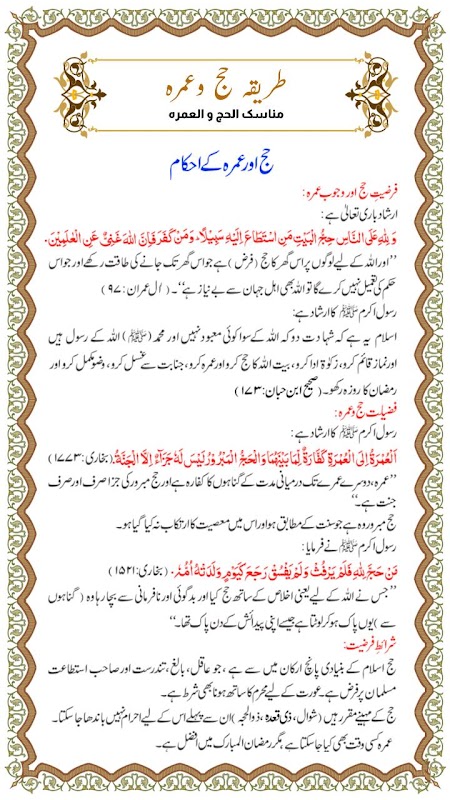 طریقہ حج وعمرہ
مناسک الحج و العمرہ
حج اور عمرہ کے احکام
فرضیتِ حج اور وجوب عمرہ:
ارشاد باری تعالیٰ ہے:
وَلِلّٰہِ عَلَی النَّاسِ حِجُّ الْبَیْتِ مَنِ اسْتَطَاعَ اِلَیْہِ سَبِیْلًا، وَمَنْ کَفَرَ فَاِنَّ اللّٰہَ غَنِیٌّ عَنِ الْعٰلَمِیْنَ.
’’اور اللہ کے لیے لوگوں پر اس گھر کا حج (فرض) ہے جو اس گھر تک جانے کی طاقت رکھے اور جو اس
حکم کی تعمیل نہیں کرے گا تو اللہ بھی اہل جہان سے بے نیاز ہے‘‘۔ (اٰل عمران: ۹۷)
رسول اکرم ﷺ کا ارشاد ہے:
اسلام یہ ہے کہ شہادت دو کہ اللہ کے سوا کوئی معبود نہیں اور محمد (ﷺ) اللہ کے رسول ہیں
اور نماز قائم کرو، زکوٰۃ ادا کرو، بیت اللہ کا حج کرو اور عمرہ کرو، جنابت سے غسل کرو، وضو مکمل کرو اور
رمضان کا روزہ رکھو۔ (صحیح ابن حبان: ۱۷۳)
فضیلت حج وعمرہ:
رسول اکرم ﷺ کا ارشاد ہے:
اَلْعُمْرَۃُ اِلَی الْعُمْرَۃِ کَفَّارَۃٌ لِّمَا بَیْنَھُمَا وَالْحَجُّ الْمَبْرُوْرُ لَیْسَ لَہٗ جَزَآءٌ اِلَّا الْجَنَّۃُ. (بخاری: ۱۷۷۳)
’’عمرہ، دوسرے عمرے تک درمیانی مدت کے گناہوں کا کفارہ ہے اور حج مبرور کی جزا صرف اور صرف
جنت ہے۔‘‘
حج مبرور وہ ہے جو سنت کے مطابق ہو اور اس میں معصیت کا ارتکاب نہ کیا گیا ہو۔
رسول اکرم ﷺ نے فرمایا:
مَنْ حَجَّ لِلّٰہِ فَلَمْ یَرْفُثْ وَلَمْ یَفْسُقْ رَجَعَ کَیَوْمِ وَلَدَتْہُ اُمُّہٗ. (بخاری: ۱۵۲۱)
’’جس نے اللہ کے لیے یعنی اخلاص کے ساتھ حج کیا اور بدگوئی اور نافرمانی سے بچا رہا وہ (گناہوں
سے) یوں پاک ہو کر لوٹتا ہے جیسے اپنی پیدائش کے دن پاک تھا۔‘‘
شرائط فرضیت:
حج اسلام کے بنیادی پانچ ارکان میں سے ہے، جو عاقل، بالغ، تندرست اور صاحب استطاعت
مسلمان پر فرض ہے۔ عورت کے لیے محرم کا ساتھ ہونا بھی شرط ہے۔
حج کے مہینے مقرر ہیں (شوال، ذی قعدہ، ذوالحجہ) ان سے پہلے اس کے لیے احرام نہیں باندھا جا سکتا۔
عمرہ کسی وقت بھی کیا جا سکتا ہے مگر رمضان المبارک میں افضل ہے۔